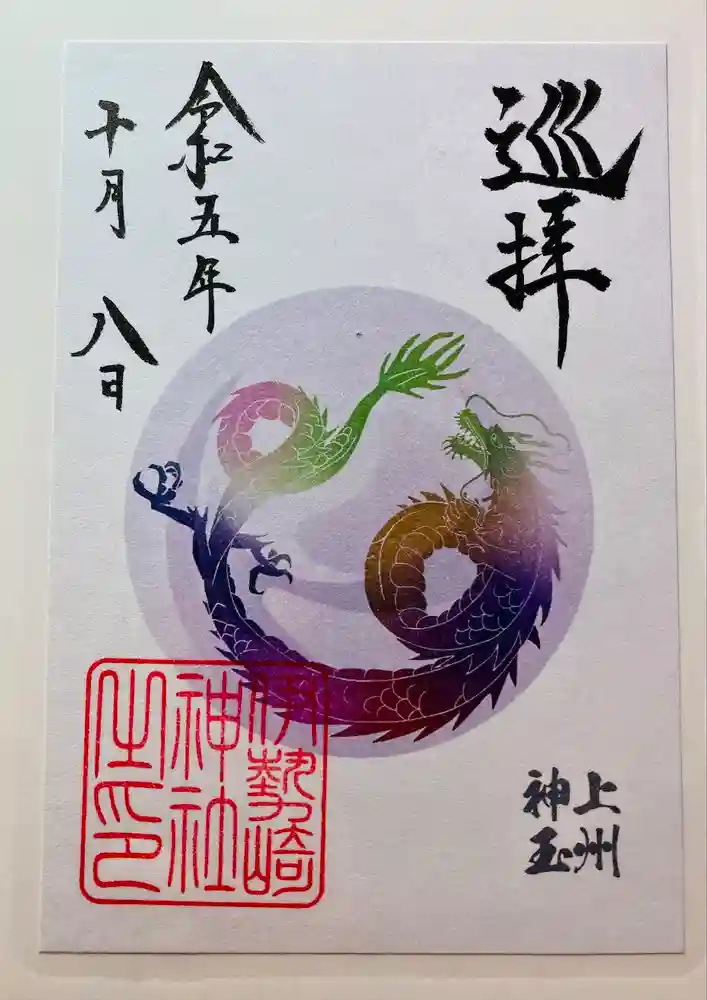 巡拝
上州
神玉
令和五年
十月八日
伊勢崎
神社
之印